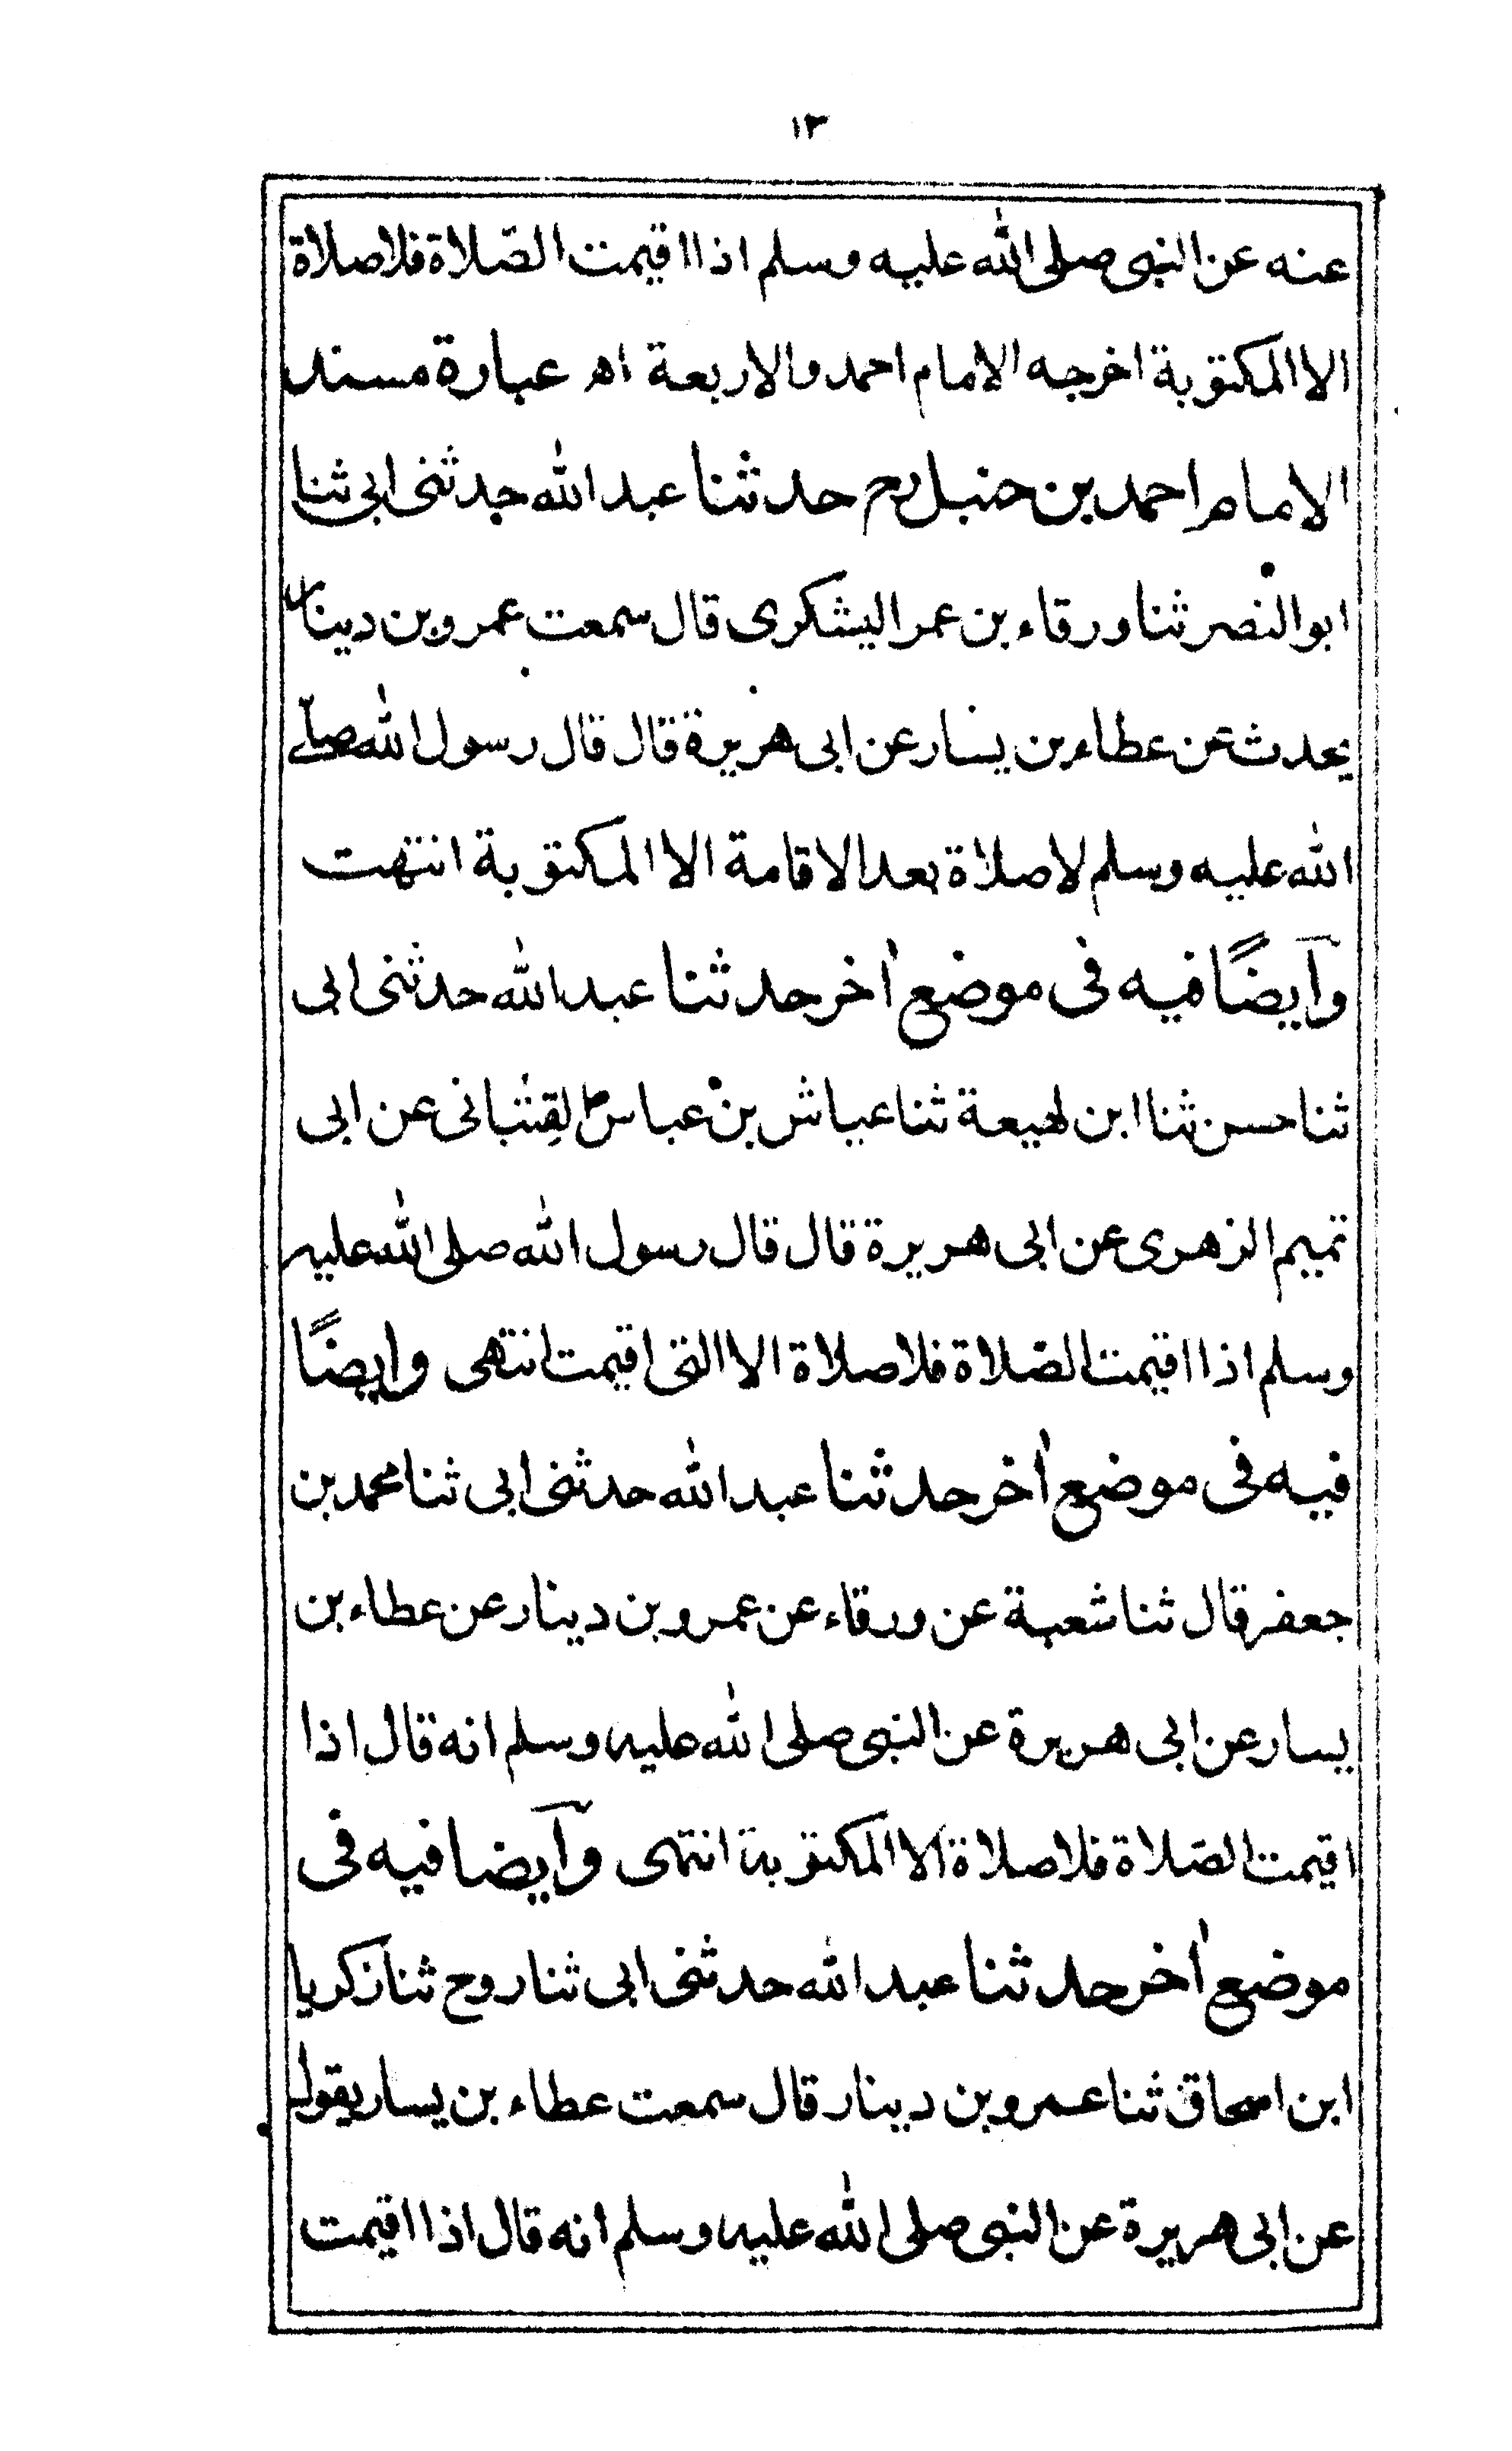 ١٣
عنه عن النبی صلی الله علیه وسلم اذا اقیمت الصّلاة فلا صلاة
الا المکتوبة اخرجه الامام احمد والاربعة اھ عبارة مسند
الامام احمد بن حنبل رح حدثنا عبد الله حدثنی ابی ثنا
ابو النضر ثنا ورقاء بن عمر الیشکری قال سمعت عمرو بن دینار
یحدث عن عطاء بن یسار عن ابی هریرة قال قال رسول الله صلے
الله علیه وسلم لا صلاة بعد الاقامة الا المکتوبة انتهت
وآیضًا فیه فی موضع اٰخر حدثنا عبد الله حدثنی ابی
ثنا حسن ثنا ابن لهیعة ثنا عیاش بن عباس القِتْبانی عن ابی
تمیم الزهری عن ابی هریرة قال قال رسول الله صلی الله علیه
وسلم اذا اقیمت الصّلاة فلا صلاة الا التی اقیمت انتهی وایضًا
فیه فی موضع اٰخر حدثنا عبد الله حدثنی ابی ثنا محمد بن
جعفر قال ثنا شعبة عن ورقاء عن عمرو بن دینار عن عطاء بن
یسار عن ابی هریرة عن النبی صلی الله علیه وسلم انه قال اذا
اقیمت الصّلاة فلا صلاة الا المکتوبة انتهی وآیضا فیه فی
موضع اٰخر حدثنا عبد الله حدثنی ابی ثنا روح ثنا زکریا
ابن اسحاق ثنا عمرو بن دینار قال سمعت عطاء بن یسار یقول
عن ابی هریرة عن النبی صلی الله علیه وسلم انه قال اذا اقیمت